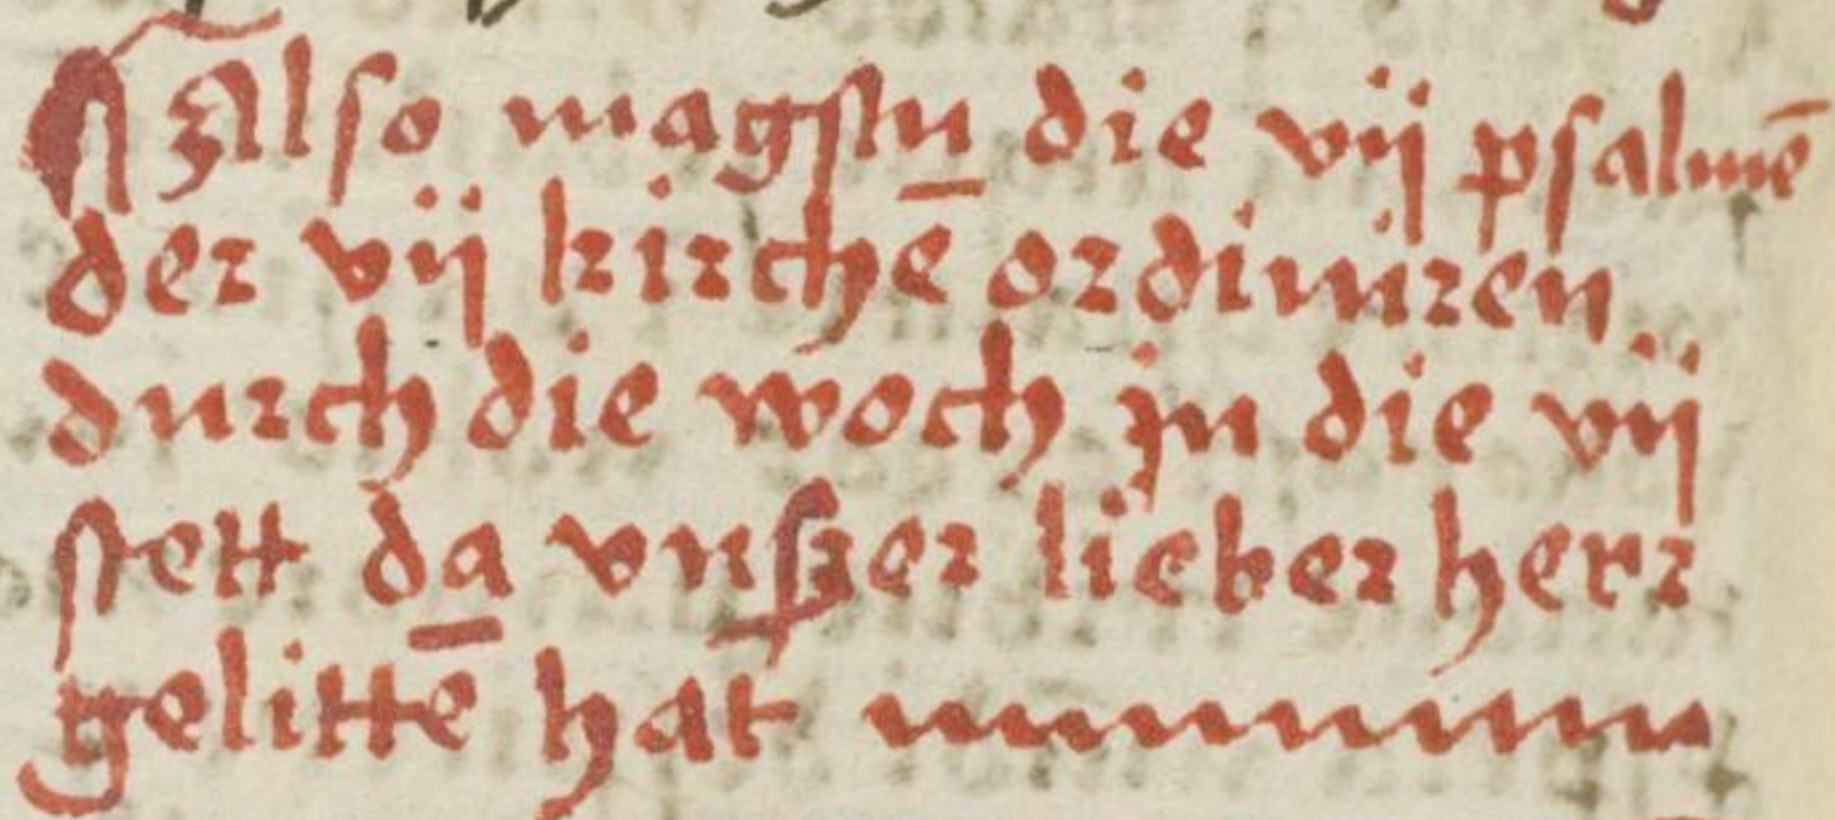 ¶ Also magstu die vij psalmē
der vij kirchē ordiniren
durch die woch jn die vij
stett da vnßer lieber herr
gelittē hat